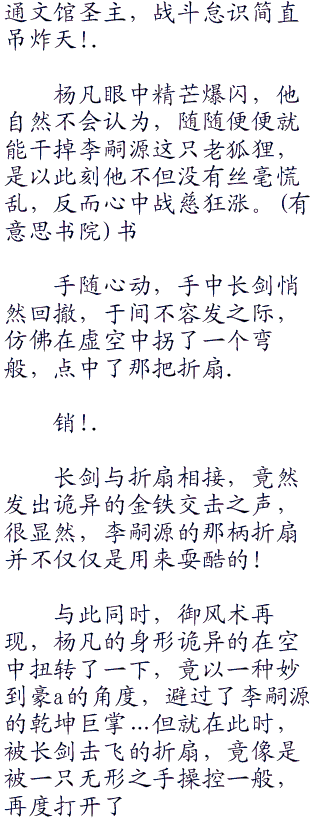 通文馆圣主，战斗怠识简直
吊炸天!.
杨凡眼中精芒爆闪，他
自然不会认为，随随便便就
能干掉李嗣源这只老狐狸，
是以此刻他不但没有丝毫慌
乱，反而心中战慈狂涨。(有
意思书院)书
手随心动，手中长剑悄
然回撤，于间不容发之际，
仿佛在虚空中拐了一个弯
般，点中了那把折扇.
销!.
长剑与折扇相接，竟然
发出诡异的金铁交击之声，
很显然，李嗣源的那柄折扇
并不仅仅是用来耍酷的!
与此同时，御风术再
现，杨凡的身形诡异的在空
中扭转了一下，竟以一种妙
到豪a的角度，避过了李嗣源
的乾坤巨掌...但就在此时，
被长剑击飞的折扇，竟像是
被一只无形之手操控一般，
再度打开了